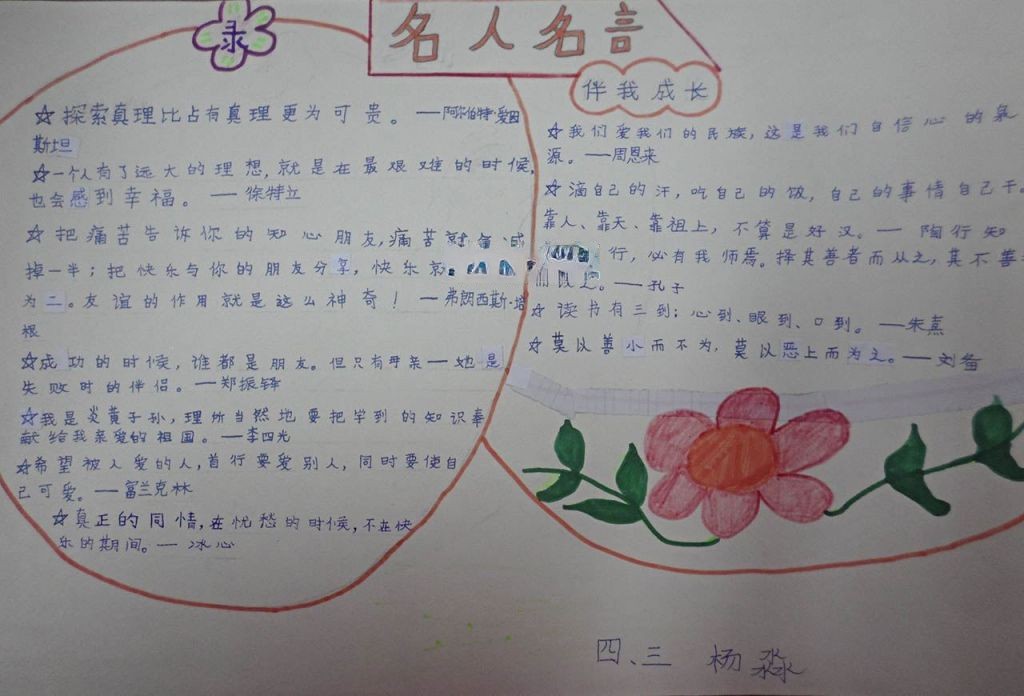 录
名人名言
伴我成长
☆探索真理比占有真理更为可贵。——阿尔伯特·爱因
斯坦
☆一个人有了远大的理想,就是在最艰难的时候,
也会感到幸福。——徐特立
☆把痛苦告诉你的知心朋友,痛苦就会减
掉一半;把快乐与你的朋友分享,快乐就
为二。友谊的作用就是这么神奇!——弗朗西斯·培
根
☆成功的时候,谁都是朋友。但只有母亲——她是
失败时的伴侣。——郑振铎
☆我是炎黄子孙,理所当然地要把学到的知识奉
献给我亲爱的祖国。——李四光
☆希望被人爱的人,首行要爱别人,同时要使自
己可爱。——富兰克林
☆真正的同情,在忧愁的时候,不在快
乐的期间。——冰心
☆我们爱我们的民族,这是我们自信心的泉
源。——周恩来
☆滴自己的汗,吃自己的饭,自己的事情自己干。
靠人、靠天、靠祖上,不算是好汉。——陶行知
行,必有我师焉。择其善者而从之,其不善
而改之。——孔子
☆读书有三到:心到、眼到、口到。——朱熹
☆莫以善小而不为,莫以恶上而为之。——刘备
四、三 杨淼